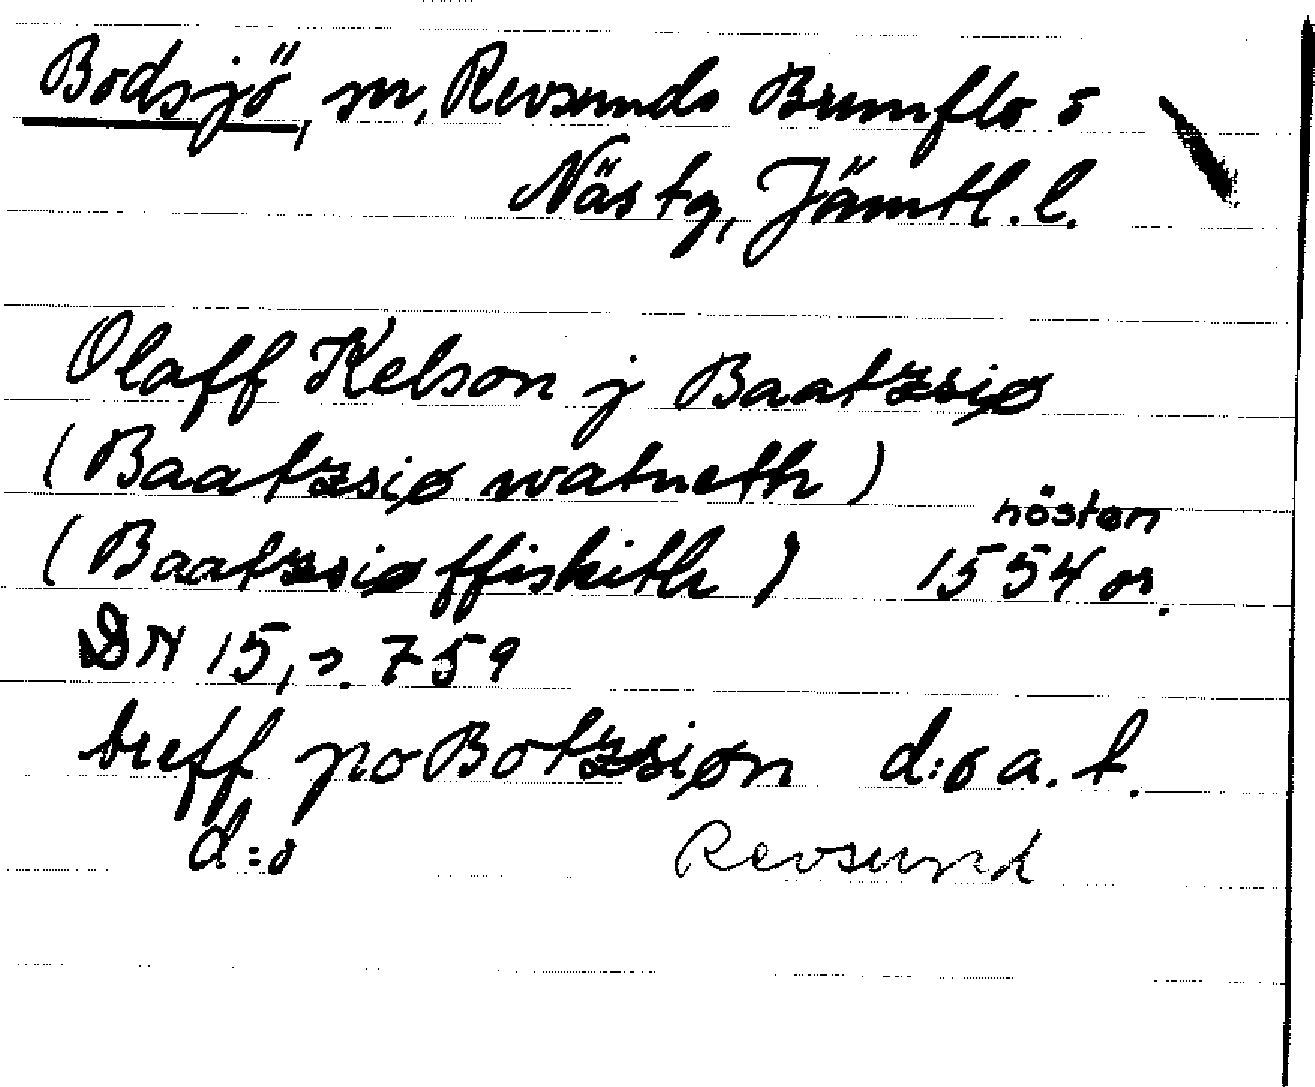 Bodsjö, sn, Revsunds Brunflo o
Näs tg, Jämtl. l.
Olaff Kelson j Baatzsiø
(Baatzsiø watneth)
hösten
(Baatzsiøffiskith) 1554 or.
DN 15, s. 759
breff po Botzsiøn d:o a. t.
d:o Revsund